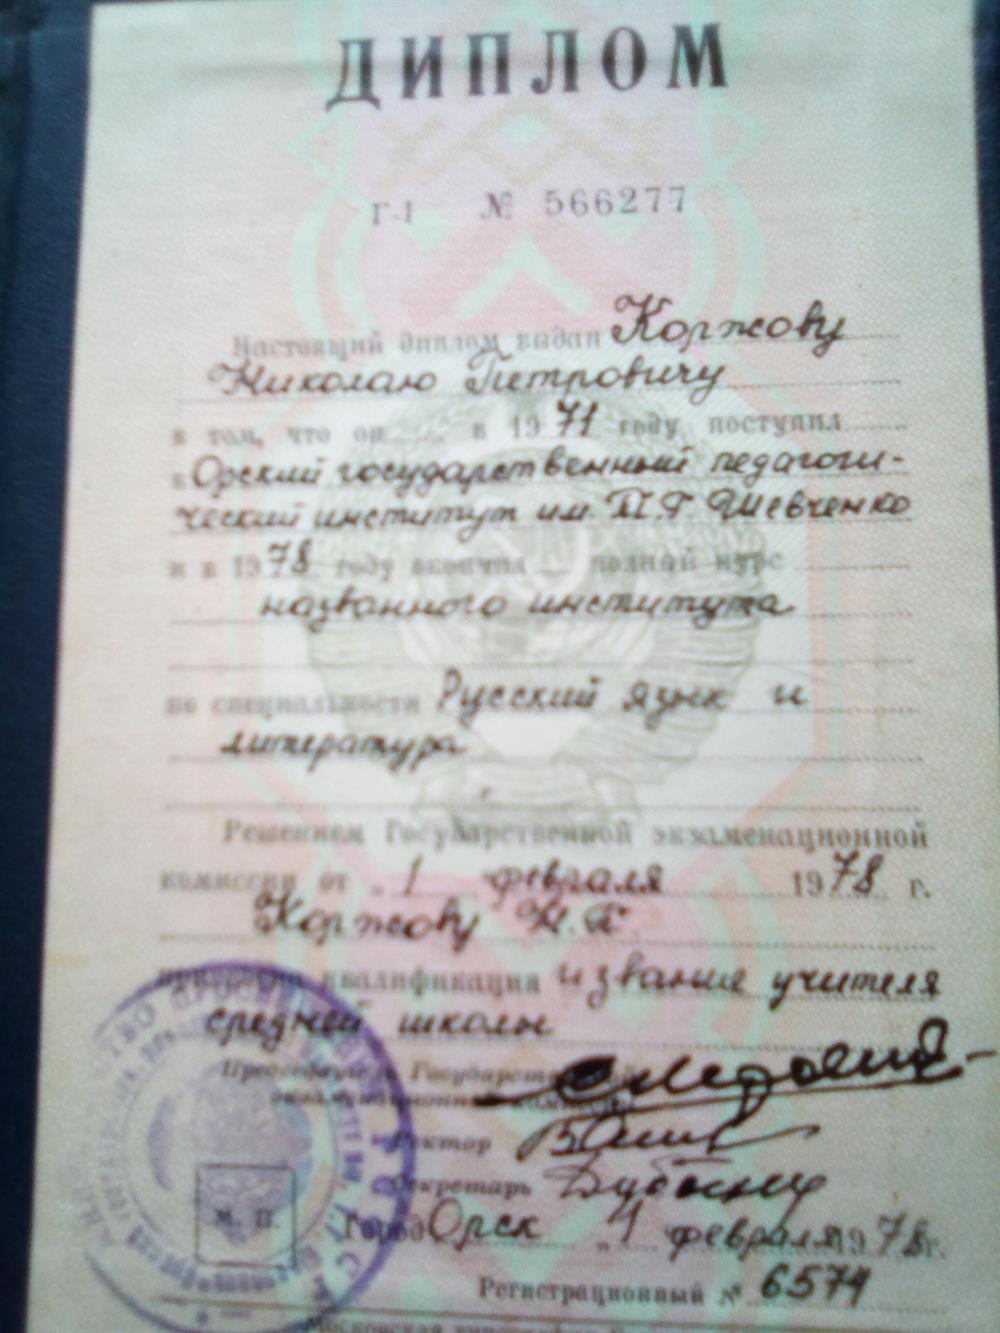 ДИПЛОМ
Г-I № 566277
Настоящий диплом выдан Коржову
Николаю Петровичу
в том, что он в 1971 году поступил
в Орский государственный педагоги-
ческий институт им. Т.Г. Шевченко
и в 1978 году окончил полный курс
названного института
по специальности Русский язык и
литература
Решением Государственной экзаменационной
комиссии от „1 февраля 1978 г.
Коржову Н.П.
присвоена квалификация и звание учителя
средней школы
Председатель Государственной
экзаменационной комиссии
Ректор
Секретарь
М. П. Город Орск „1 февраля 1978 г.
Регистрационный № 6574
Московская